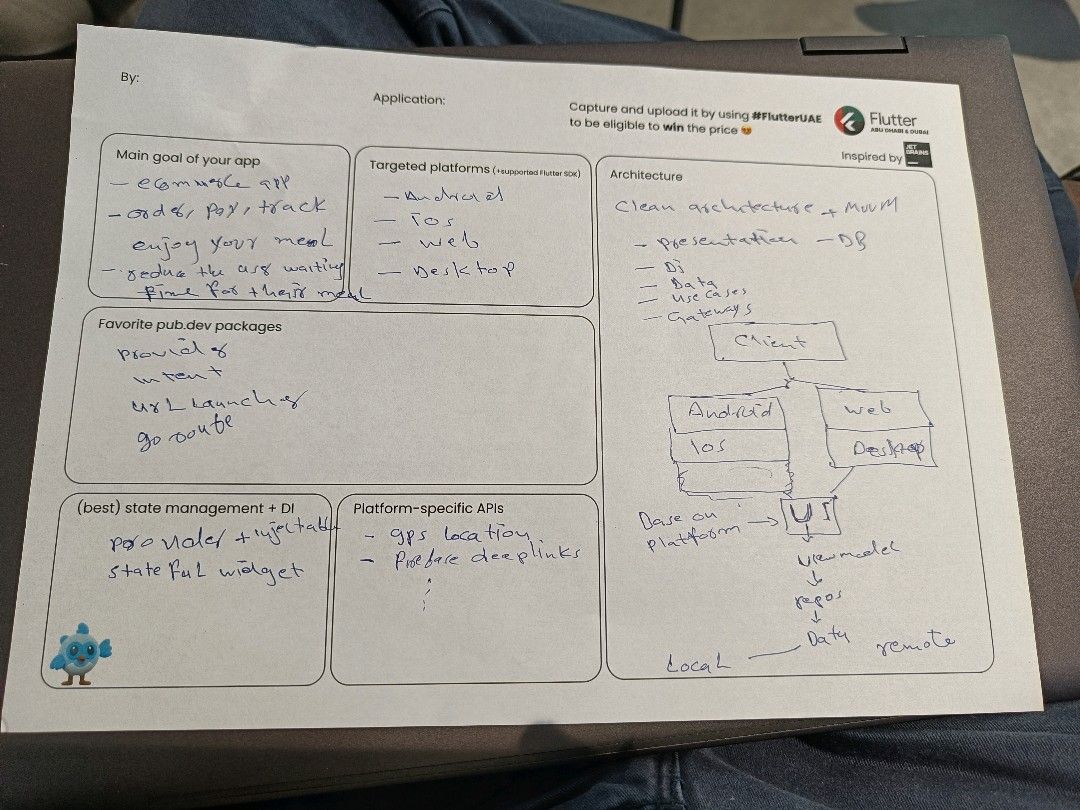 By:
Application:
Capture and upload it by using #FlutterUAE
to be eligible to win the price 😍
Flutter
ABU DHABI & DUBAI
Inspired by
JET
BRAINS
Main goal of your app
- ecommerce app
- order, pay, track
enjoy your meal
- reduce the usr waiting
time for their meal
Targeted platforms (+supported Flutter SDK)
- Android
- ios
- web
- Desktop
Favorite pub.dev packages
provider
intent
url Launcher
go route
(best) state management + DI
provider + injectable
stateful widget
Platform-specific APIs
- gps location
- firebase deeplinks
Architecture
Clean architecture + MVVM
- presentation - DB
- Di
- Data
- use cases
- Gateways
Client
Android
Ios
web
Desktop
Base on
platform
UI
viewmodel
repos
Data
Local
remote